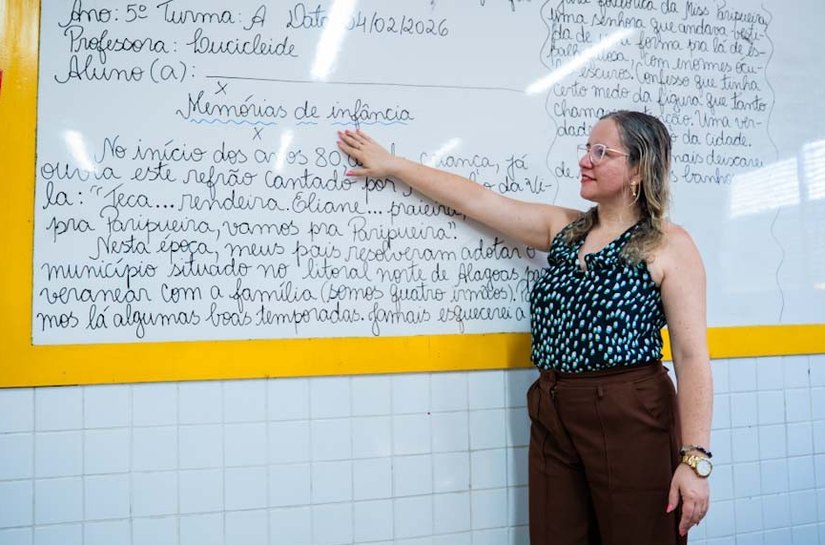 Ano: 5º Turma: A Data 04/02/2026
Professora: Lucicleide
Aluno(a):
Memórias de infância
No início dos anos 80, criança, já
ouvia este refrão cantado por da Vi-
la: "Teca... rendeira. Eliane... praieira,
pra Paripueira, vamos pra Paripueira".
Nesta época, meus pais resolveram adotar o
município situado no litoral norte de Alagoas para
veranear com a família (somos quatro irmãos).
mos lá algumas boas temporadas. Jamais esquecerei a
folclórica da Miss Paripueira,
uma senhora que andava vesti-
da de e forma pra lá de es-
palhafatosa, com enormes ócu-
escuros. Confesso que tinha
certo medo da figura que tanto
chamava atenção. Uma ver-
dade da cidade.
mais deixarei
s banho